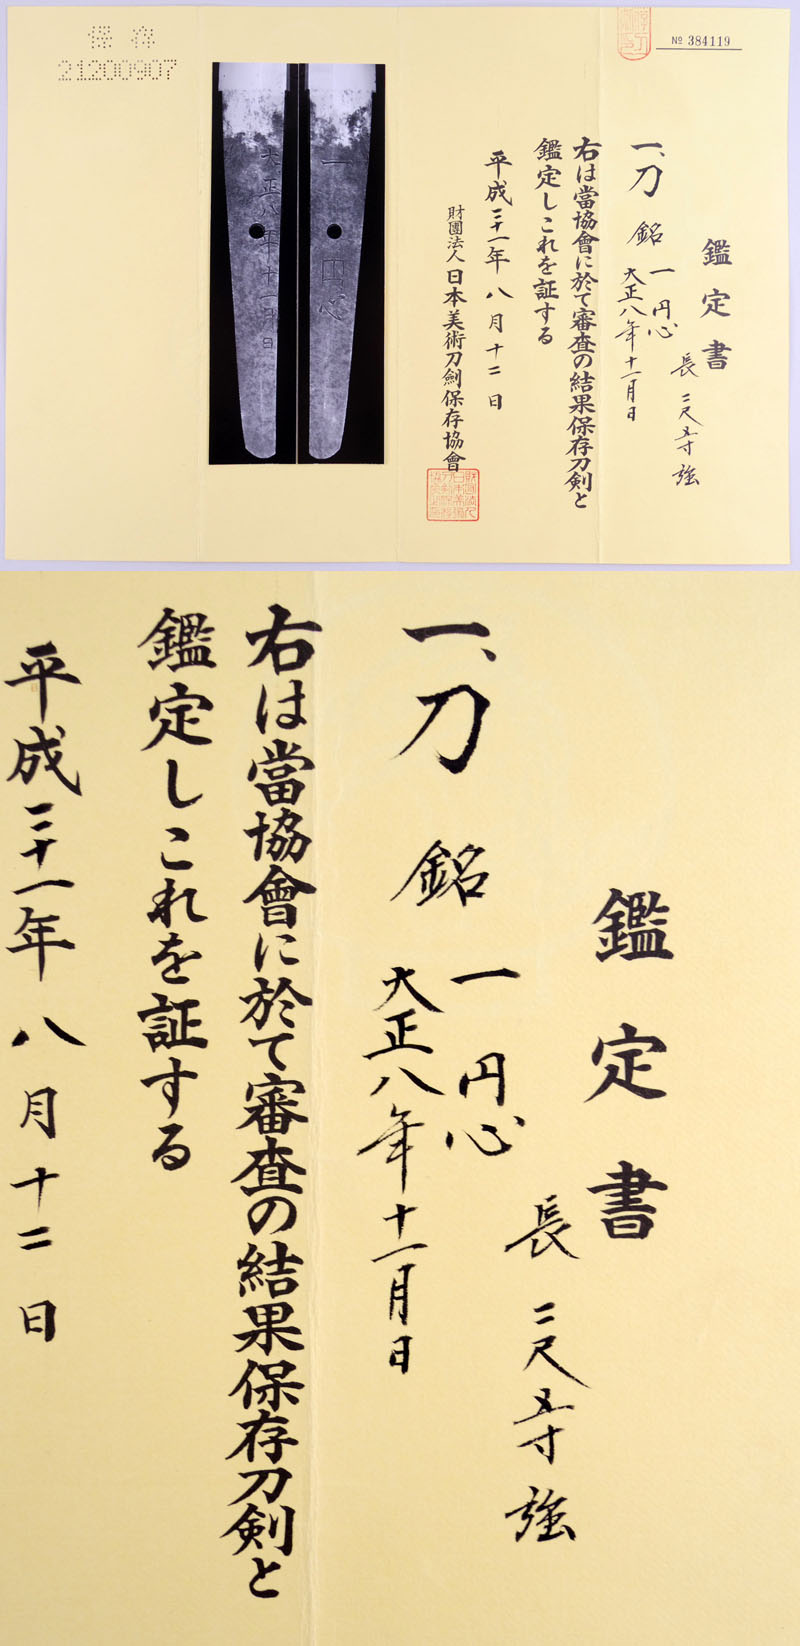 保存
21200907
№ 384119
鑑定書
一、刀 銘 一円心
大正八年十一月日
長 二尺五寸強
右は當協會に於て審査の結果保存刀剣と
鑑定しこれを証する
平成二十一年八月十二日
財團法人 日本美術刀劍保存協會
一円心
大正八年十一月日
鑑定書
一、刀 銘 一円心
大正八年十一月日
長 二尺五寸強
右は當協會に於て審査の結果保存刀剣と
鑑定しこれを証する
平成二十一年八月十二日